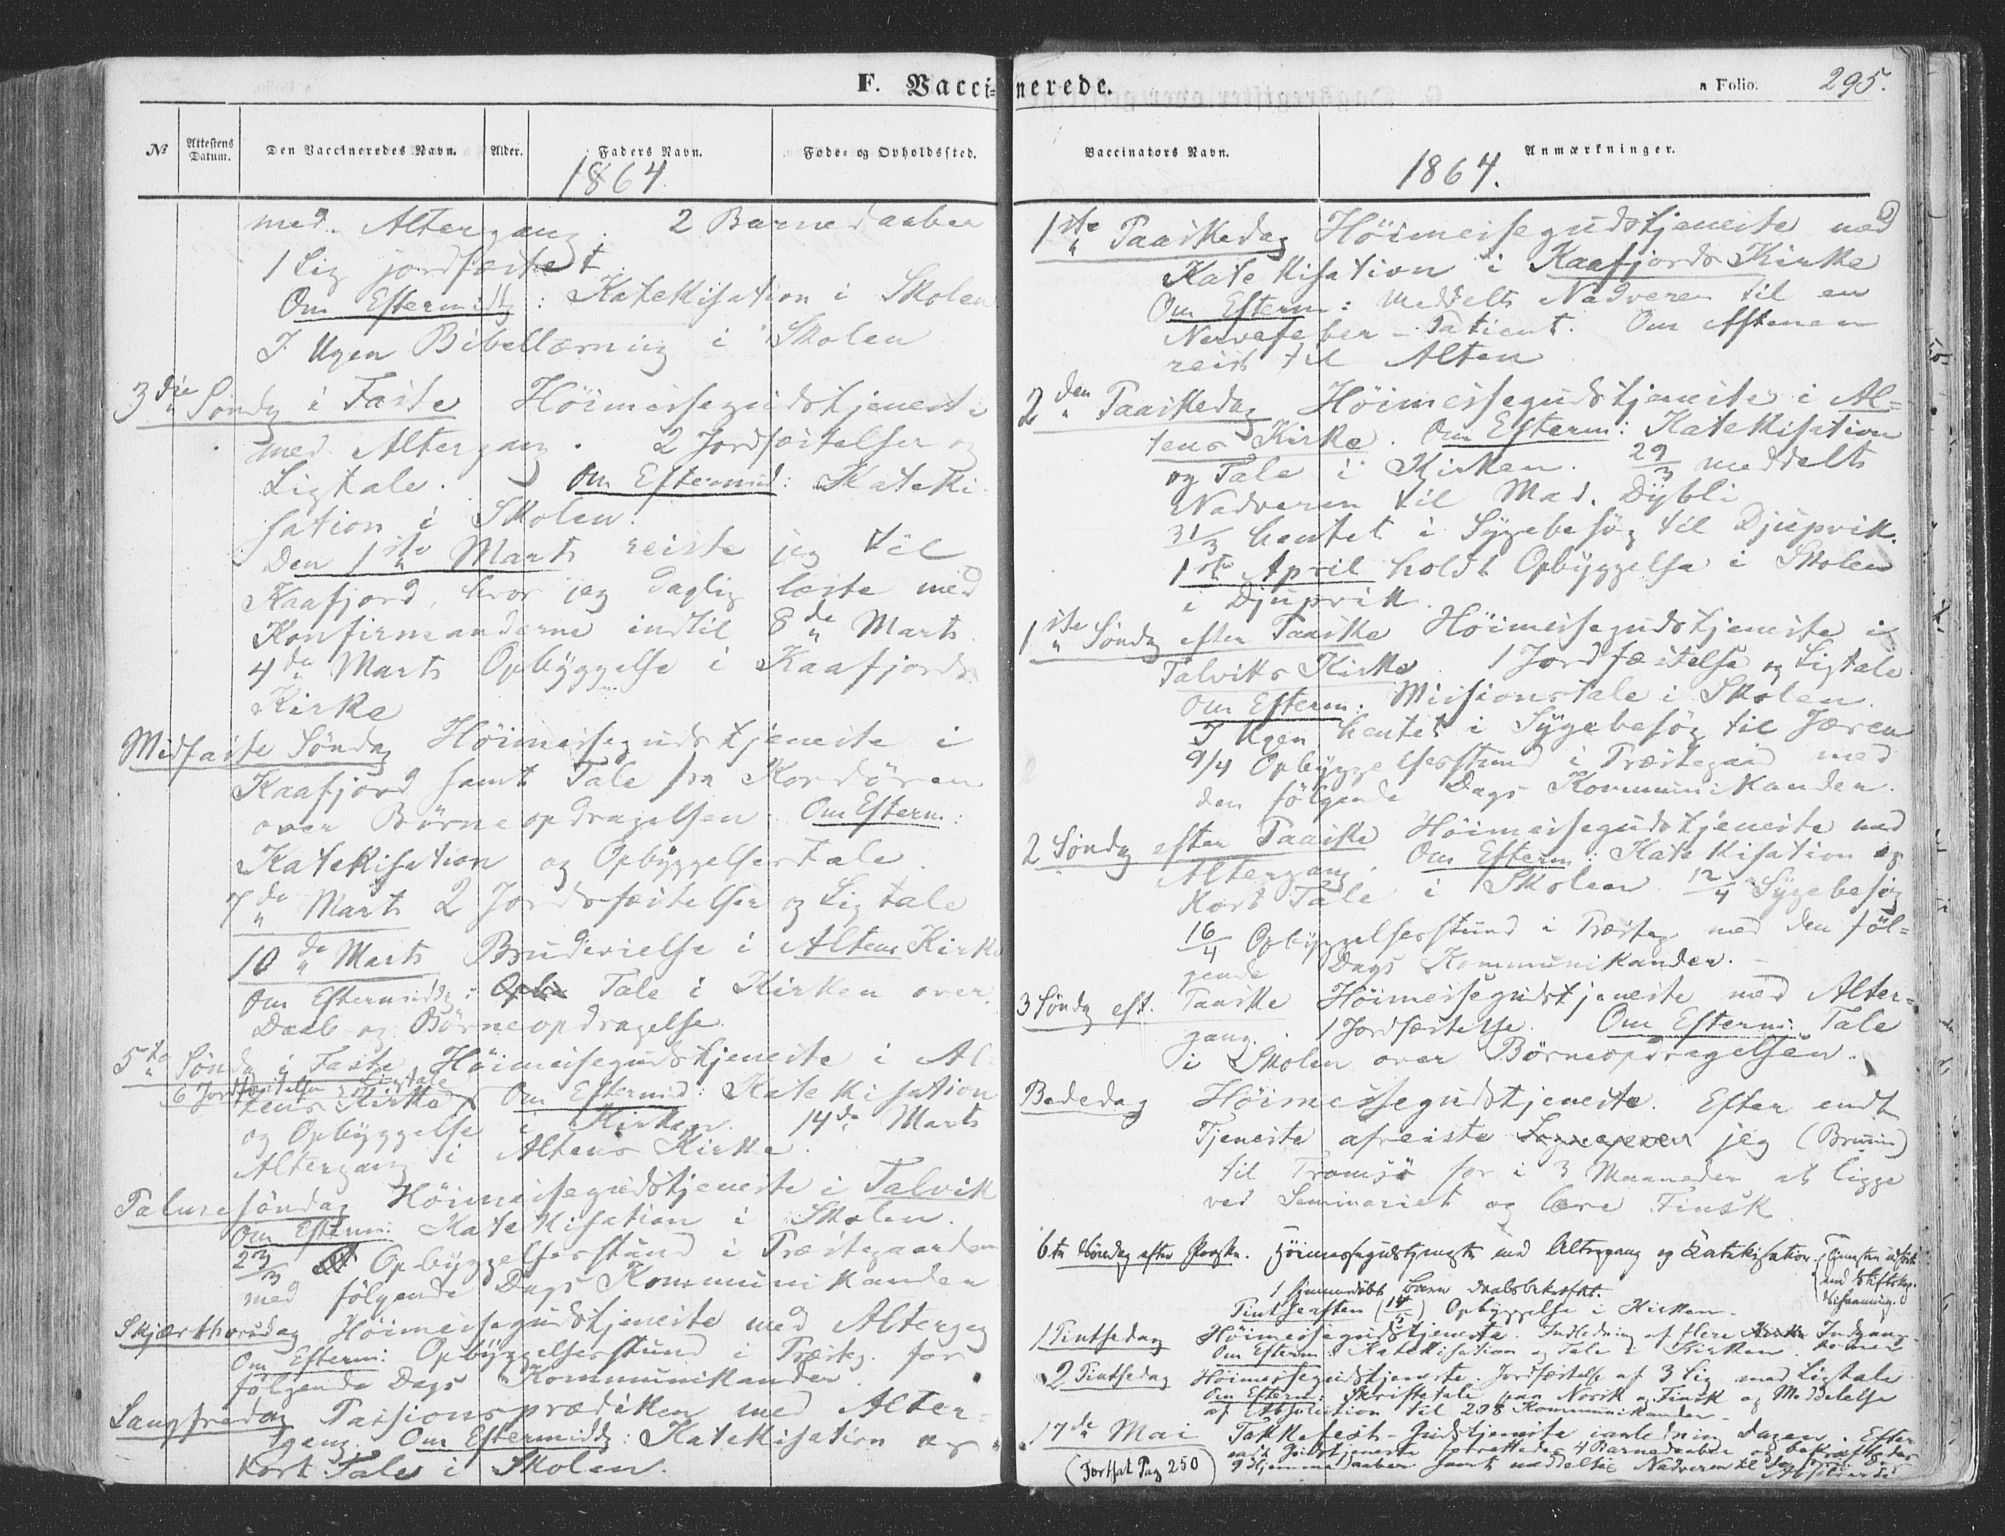 F. Vaccinerede.
a Folio. 295.
No
Attestens Datum.
Den Vaccineredes Navn.
Alder.
Faders Navn.
Føde- og Opholdssted.
Vaccinators Navn.
Anmærkninger.
1864.
1864.
med Altergang. 2 Barnedaaber
1 Lig jordfæstet
Om Eftermidg: Katekisation i Skolen
I Ugen Bibellæsning i Skolen
3die Søndg i Faste Höimessegudstjeneste
med Altergang. 2 Jordfæstelser og
Ligtale. Om Eftermid: Kateki-
sation i Skolen.
Den 1ste Marts reiste jeg til
Kaafjord, hvor jeg daglig læste med
Konfirmanderne indtil 8de Marts
4de Marts Opbyggelse i Kaafjords
Kirke
Midfaste Søndag Höimessegudstjeneste i
Kaafjord samt Tale fra Kordören
over Börneopdragelsen Om Efterm.:
Katekisation og Opbyggelsestale.
7de Marts 2 Jordfæstelser og Ligtale
10de Marts Brudevielse i Altens Kirke
Om Eftermiddg: Tale i Kirken over
Daab og Börneopdragelse.
5te Søndag i Faste Höimessegudstjeneste i Al-
6 Jordfæstelser Ligtale
tens Kirke Om Eftermid: Katekisation
og Opbyggelse i Kirken. 14de Marts
Altergang i Altens Kirke.
Palmesöndag Höimessegudstjeneste i Talvik
Om Efterm: Katekisation i Skolen.
23/3 Opbyggelsesstund i Præstegaarden
med følgende Dags Kommunikanter
Skjærthorsdag Höimessegudstjeneste med Altergg
Om Efterm: Opbyggelsesstund i Præstg. for
følgende Dags Kommunikander.
Langfredag Passionsprædiken med Alter-
gang. Om Eftermiddg: Katekisation og
kort Tale i Skolen.
1ste Paaskedag Höimessegudstjeneste med
Katekisation i Kaafjords Kirke
Om Efterm: meddelt Nadveren til en
Nervefeber-Patient. Om Aftenen
reist til Alten
2den Paaskedag Höimessegudstjeneste i Al-
tens Kirke. Om Efterm: Katekisation
og Tale i Kirken. 29/3 meddelt
Nadveren til Mad. Dybli
31/3 hentet i Sygebesög til Djupvik.
1ste April holdt Opbyggelse i Skolen
i Djupvik.
1ste Söndg efter Paaske Höimessegudstjeneste i
Talviks Kirke. 1 Jordfæstelse og Ligtale
Om Efterm. Missionstale i Skolen.
I Ugen hentet i Sygebesög til Jæren
9/4 Opbyggelsesstund i Præstegaard med
den fölgende Dags Kommunikander.
2 Söndg efter Paaske Höimessegudstjeneste med
Altergang. Om Efterm: Katekisation og
Kort Tale i Skolen. 12/4 Sygebesög
16/4 Opbyggelsesstund i Præsteg med den föl-
gende Dags Kommunikander.
3 Söndg eft. Paaske Höimessegudstjeneste med Alter-
gang. 1 Jordfæstelse. Om Efterm: Tale
i Skolen over Börneopdragelsen.
Bededag Höimessegudstjeneste. Efter endt
Tjeneste afreiste Sognepræsten jeg (Bruun)
til Tromsö for i 3 Maaneder at ligge
ved Seminariet og lære Finsk
6te Søndag efter Paaske. Höimessegudstjeneste med Altergang og Katekisation.
1 hjemmedöbt Barn daabsbekræftet.
Pintseaften (14/5) Opbyggelse i Kirken.
1 Pintsedag Höimessegudstjeneste. Indledning af flere Indgangs-
Om Efterm: Katekisation og Tale i Kirken. koner
2 Pintsedag Höimessegudstjeneste. Jordfæstelse af 3 Lig med Ligtale
Om Efterm: Skriftetale paa Norsk og Finsk og Meddelelse
af Absolution til 208 Kommunikander
17de Mai Takkefest-Gudstjeneste i Dagen. Efter
endt Gudstjeneste forrettedes 4 Barnedaaber og bekræftedes
9 Hjemmedaaber samt meddeltes Nadveren til
(Fortsat Pag 250)